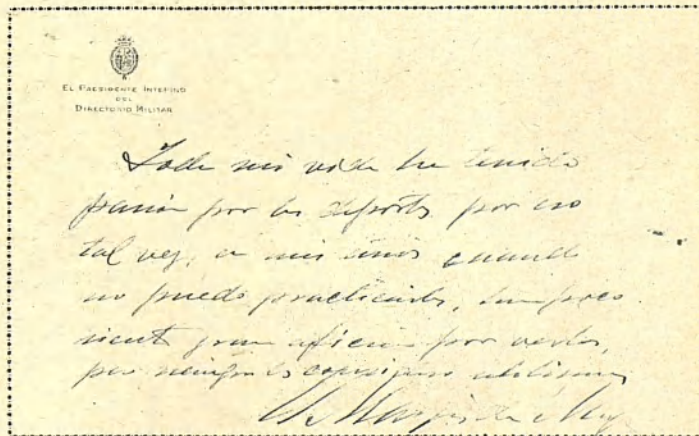 EL PRESIDENTE INTERINO
DEL
DIRECTORIO MILITAR
Toda mi vida he tenido
pasión por los deportes por eso
tal vez, a mis años cuando
no puedo practicarlos, tampoco
siento gran afición por verlos,
pero siempre los
El Marqués de